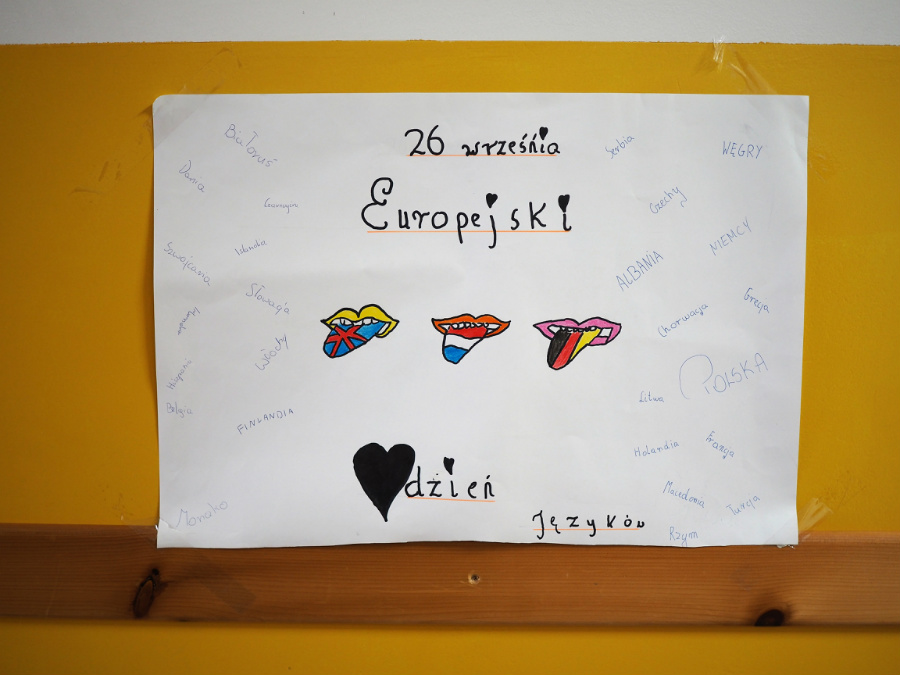 26 września
Europejski
dzień
Języków
Białoruś
Dania
Szwajcaria
Islandia
Słowacja
Włochy
Hiszpania
Belgia
FINLANDIA
Monako
Serbia
WĘGRY
Czechy
NIEMCY
ALBANIA
Grecja
Chorwacja
POLSKA
Litwa
Holandia
Francja
Macedonia
Turcja
Rzym